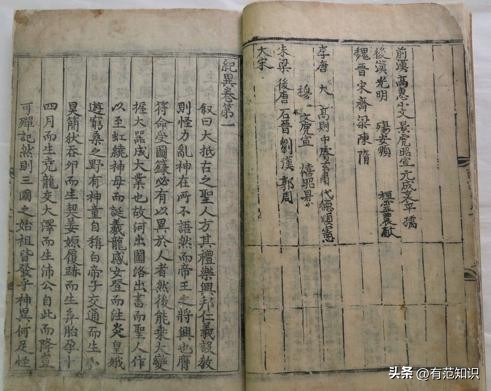 前漢 高惠小文景虎昭宣元成哀平孺
後漢光明 殤安順 桓靈農献
魏晋宋齊梁陳隋
李唐 太 高則中睿玄肅代德順憲
穆 文虎宣 僖昭景
朱梁後唐石晋劉漢郭周
大宋
紀異卷第一
叙曰大抵古之聖人方其禮樂興邦仁義設教
則怪力亂神在所不語然而帝王之將興也膺
符命受圖籙必有以異於人者然後能乘大變
握大器成大業也故河出圖洛出書而聖人作
以至虹繞神母而誕羲龍感女登而注炎皇娥
遊窮桑之野有神童自稱白帝子交通而生小
昊簡狄吞卵而生契姜嫄履跡而生弃胎孕十
四月而生堯龍交大澤而生沛公自此而降豈
可殫記然則三國之始祖皆發乎神異何足怪
头条 @有范知识